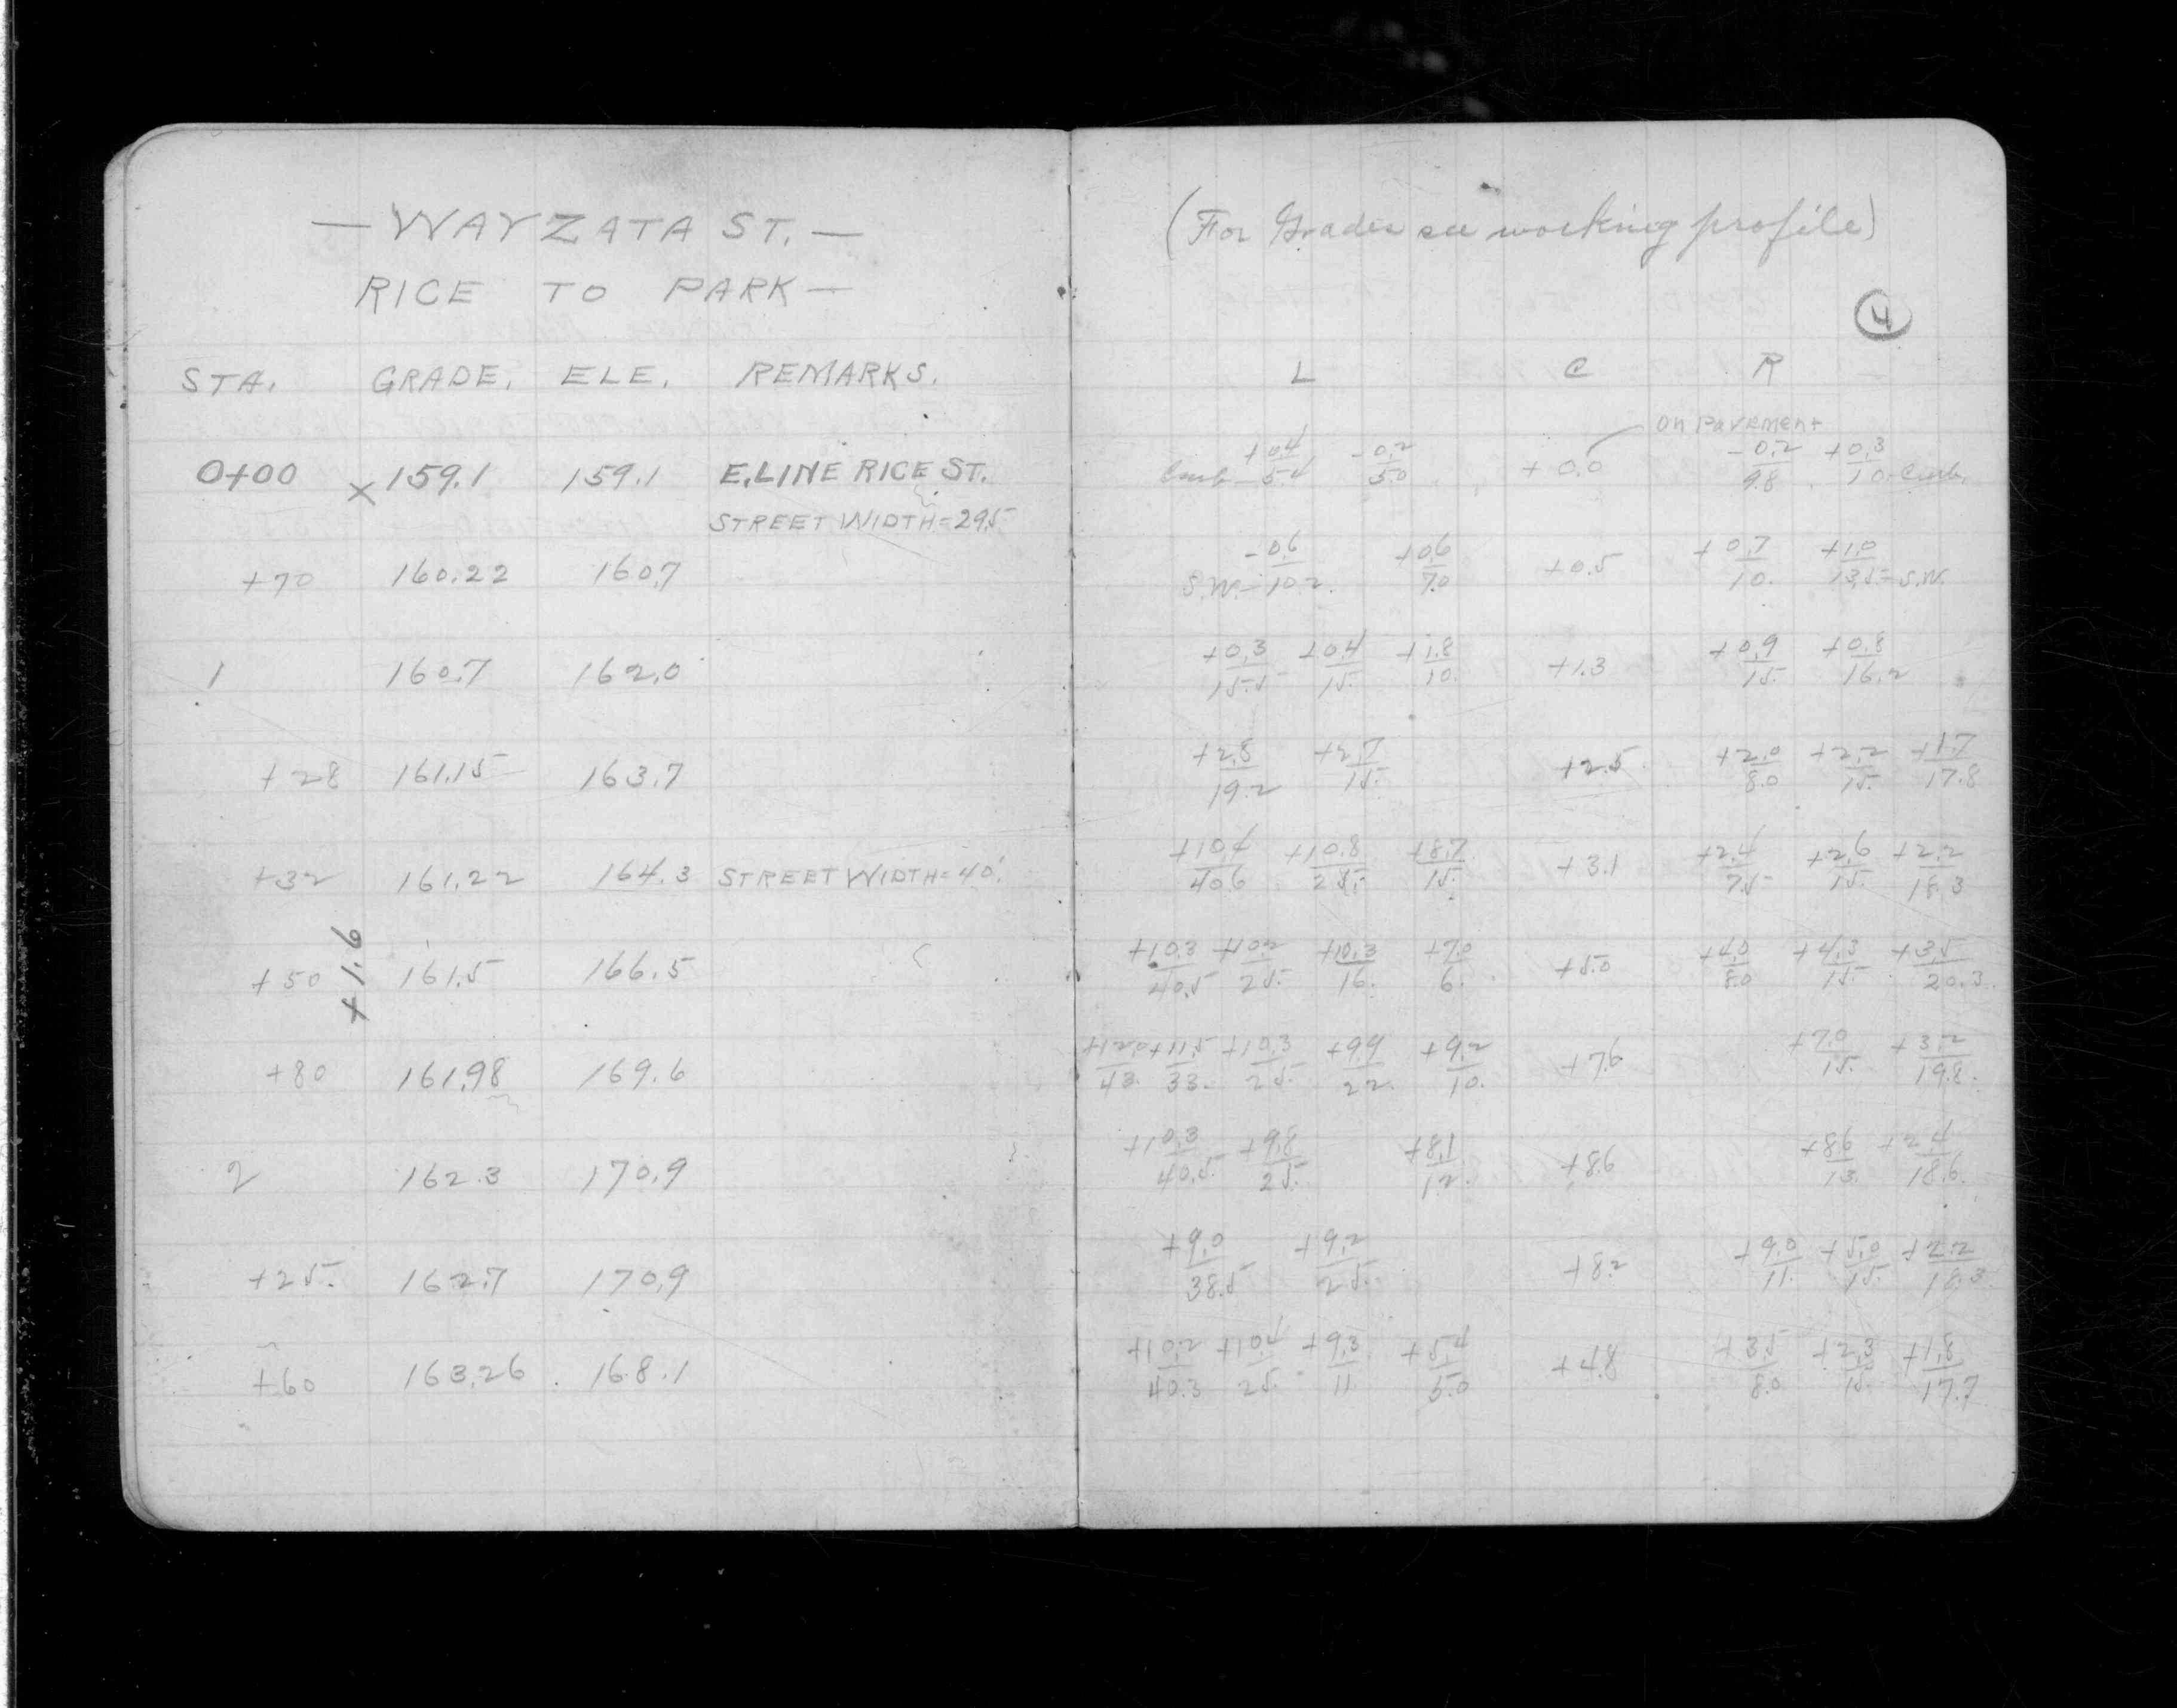 — WAYZATA ST. —
RICE TO PARK —
STA. GRADE. ELE. REMARKS.
0+00 × 159.1 159.1 E. LINE RICE ST.
STREET WIDTH = 29.5
+70 160.22 160.7
1 160.7 162.0
+28 161.15 163.7
+32 161.22 164.3 STREET WIDTH = 40'
+1.6
+50 161.5 166.5
+80 161.98 169.6
2 162.3 170.9
+25. 162.7 170.9
+60 163.26 168.1
(For Grades see working profile)
4
L C R
On Pavement
+0.4 -0.2 +0.0 -0.2 +0.3
Curb - 5.4 5.0 9.8 10. Curb.
-0.6 +0.6 +0.5 +0.7 +1.0
S.W. - 10.2. 7.0 10. 13.5 - S.W.
+0.3 +0.4 +1.8 +1.3 +0.9 +0.8
15.5 15. 10. 15. 16.2
+2.8 +2.7 +2.5 +2.0 +2.2 +1.7
19.2 15. 8.0 15. 17.8
+10.4 +10.8 +8.7 +3.1 +2.4 +2.6 +2.2
40.6 25. 15. 7.5 15. 18.3
+10.3 +10.2 +10.3 +7.0 +5.0 +4.0 +4.3 +3.5
40.5 25. 16. 6. 8.0 15. 20.3
+12.0 +11.5 +10.3 +9.9 +9.2 +7.6 +7.0 +3.2
43. 33. 25. 22. 10. 15. 19.8.
+10.3 +9.8 +8.1 +8.6 +8.6 +2.4
40.5 25. 12. 13. 18.6.
+9.0 +9.2 +8.2 +9.0 +5.0 +2.2
38.5 25. 11. 15. 18.3
+10.2 +10.4 +9.3 +5.4 +4.8 +3.5 +2.3 +1.8
40.3 25. 11 5.0 8.0 15. 17.7